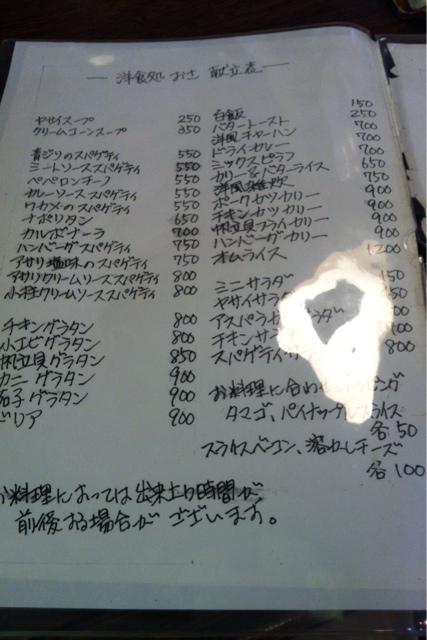 洋食処 献立表
ヤサイスープ 250
クリームコーンスープ 350
青ジソのスパゲティ 550
ミートソーススパゲティ 550
ペペロンチーノ 550
カレーソーススパゲティ 550
ワカメのスパゲティ 550
ナポリタン 650
カルボナーラ 700
ハンバーグスパゲティ 750
アサリ塩味のスパゲティ 750
アサリクリームソーススパゲティ 800
小柱クリームソーススパゲティ 800
チキングラタン 800
小エビグラタン 800
帆立貝グラタン 850
カニグラタン 900
茄子グラタン 900
ドリア 900
白飯 150
バタートースト 250
洋風チャーハン 700
ドライカレー 700
ミックスピラフ 700
カリー&バターライス 650
洋風雑炊 750
ポークカツカリー 900
チキンカツカリー 900
帆立貝フライカリー 900
ハンバーグカリー 900
オムライス 1200
ミニサラダ 150
ヤサイサラ
アスパラ ラダ
チキンサ 00
スパゲティサ 800
お料理に合わせ ッピング
タマゴ、パイナップルスライス
各50
スライスベーコン、溶かしチーズ
各100
お料理によっては出来上り時間が
前後する場合がございます。